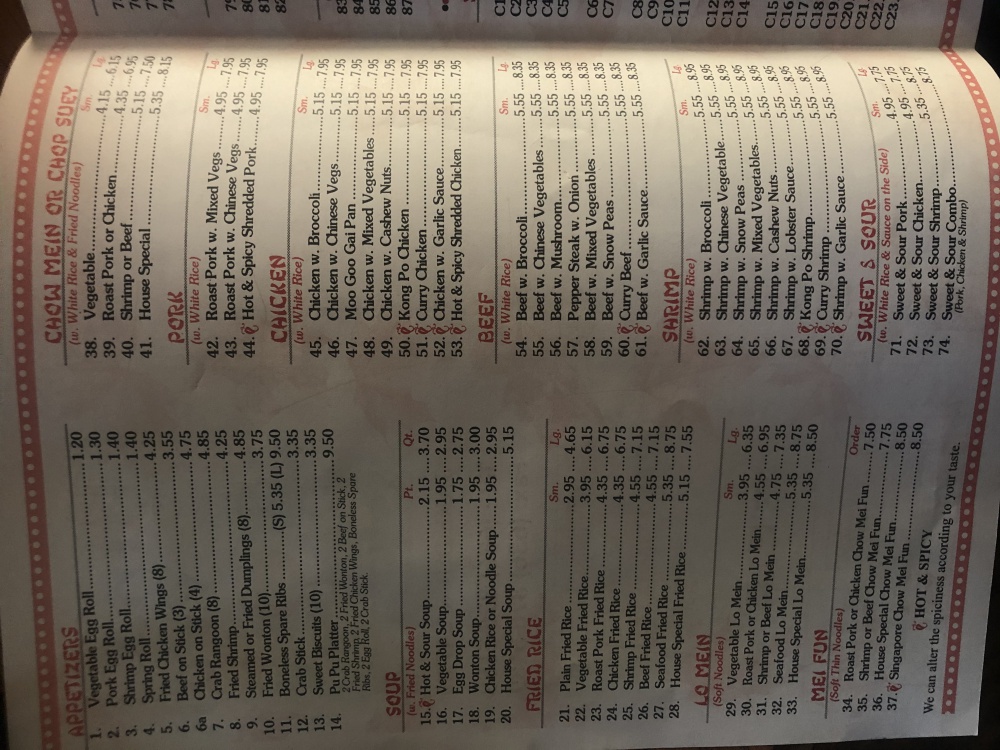 APPETIZERS
1. Vegetable Egg Roll 1.20
2. Pork Egg Roll 1.30
3. Shrimp Egg Roll 1.40
4. Spring Roll 1.40
5. Fried Chicken Wings (8) 4.25
6. Beef on Stick (3) 3.55
6a Chicken on Stick (4) 4.75
7. Crab Rangoon (8) 4.85
8. Fried Shrimp 4.25
9. Steamed or Fried Dumplings (8) 4.85
10. Fried Wonton (10) 3.75
11. Boneless Spare Ribs (S) 5.35 (L) 9.50
12. Crab Stick 3.35
13. Sweet Biscuits (10) 3.35
14. Pu Pu Platter 9.50
2 Crab Rangoon, 2 Fried Wonton, 2 Beef on Stick, 2
Fried Shrimp, 2 Fried Chicken Wings, Boneless Spare
Ribs, 2 Egg Roll, 2 Crab Stick.
SOUP
(w. Fried Noodles) Pt. Qt.
15. Hot & Sour Soup 2.15 3.70
16. Vegetable Soup 1.95 2.95
17. Egg Drop Soup 1.75 2.75
18. Wonton Soup 1.95 3.00
19. Chicken Rice or Noodle Soup 1.95 2.95
20. House Special Soup 5.15
FRIED RICE
Sm. Lg.
21. Plain Fried Rice 2.95 4.65
22. Vegetable Fried Rice 3.95 6.15
23. Roast Pork Fried Rice 4.35 6.75
24. Chicken Fried Rice 4.35 6.75
25. Shrimp Fried Rice 4.55 7.15
26. Beef Fried Rice 4.55 7.15
27. Seafood Fried Rice 5.35 8.75
28. House Special Fried Rice 5.15 7.55
LO MEIN
(Soft Noodles) Sm. Lg.
29. Vegetable Lo Mein 3.95 6.35
30. Roast Pork or Chicken Lo Mein 4.55 6.95
31. Shrimp or Beef Lo Mein 4.75 7.35
32. Seafood Lo Mein 5.35 8.75
33. House Special Lo Mein 5.35 8.50
MEI FUN
(Thin Soft Noodles) Order
34. Roast Pork or Chicken Chow Mei Fun 7.50
35. Shrimp or Beef Chow Mei Fun 7.75
36. House Special Chow Mei Fun 8.50
37. Singapore Chow Mei Fun 8.50
HOT & SPICY
We can alter the spiciness according to your taste.
CHOW MEIN OR CHOP SUEY
(w. White Rice & Fried Noodles) Sm. Lg.
38. Vegetable 4.15 6.15
39. Roast Pork or Chicken 4.35 6.95
40. Shrimp or Beef 5.15 7.50
41. House Special 5.35 8.15
PORK
(w. White Rice) Sm. Lg.
42. Roast Pork w. Mixed Vegs 4.95 7.95
43. Roast Pork w. Chinese Vegs 4.95 7.95
44. Hot & Spicy Shredded Pork 4.95 7.95
CHICKEN
(w. White Rice) Sm. Lg.
45. Chicken w. Broccoli 5.15 7.95
46. Chicken w. Chinese Vegs 5.15 7.95
47. Moo Goo Gai Pan 5.15 7.95
48. Chicken w. Mixed Vegetables 5.15 7.95
49. Chicken w. Cashew Nuts 5.15 7.95
50. Kong Po Chicken 5.15 7.95
51. Curry Chicken 5.15 7.95
52. Chicken w. Garlic Sauce 5.15 7.95
53. Hot & Spicy Shredded Chicken 5.15 7.95
BEEF
(w. White Rice) Sm. Lg.
54. Beef w. Broccoli 5.55 8.35
55. Beef w. Chinese Vegetables 5.55 8.35
56. Beef w. Mushroom 5.55 8.35
57. Pepper Steak w. Onion 5.55 8.35
58. Beef w. Mixed Vegetables 5.55 8.35
59. Beef w. Snow Peas 5.55 8.35
60. Curry Beef 5.55 8.35
61. Beef w. Garlic Sauce 5.55 8.35
SHRIMP
(w. White Rice) Sm. Lg.
62. Shrimp w. Broccoli 5.55 8.95
63. Shrimp w. Chinese Vegetable 5.55 8.95
64. Shrimp w. Snow Peas 5.55 8.95
65. Shrimp w. Mixed Vegetables 5.55 8.95
66. Shrimp w. Cashew Nuts 5.55 8.95
67. Shrimp w. Lobster Sauce 5.55 8.95
68. Kong Po Shrimp 5.55 8.95
69. Curry Shrimp 5.55 8.95
70. Shrimp w. Garlic Sauce 5.55 8.95
SWEET & SOUR
(w. White Rice & Sauce on the Side) Sm. Lg
71. Sweet & Sour Pork 4.95 7.75
72. Sweet & Sour Chicken 4.95 7.75
73. Sweet & Sour Shrimp 5.35 8.75
74. Sweet & Sour Combo 5.35 8.75
(Pork, Chicken & Shrimp)
83
84
85
86
87
C1
C2
C3
C4
C5
C6
C7
C8
C9
C10
C11
C12
C13
C14
C15
C16
C17
C18
C19
C20
C21
C22
C23